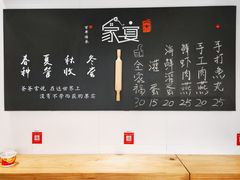 家宴
春种
夏管
秋收
冬藏
爸爸常说 在这世上
没有不劳而获的果实
手打鱼丸 25
手工肉燕 20
鲜虾肉燕 25
海鲜灌蛋 20
灌蛋 15
全家福 30